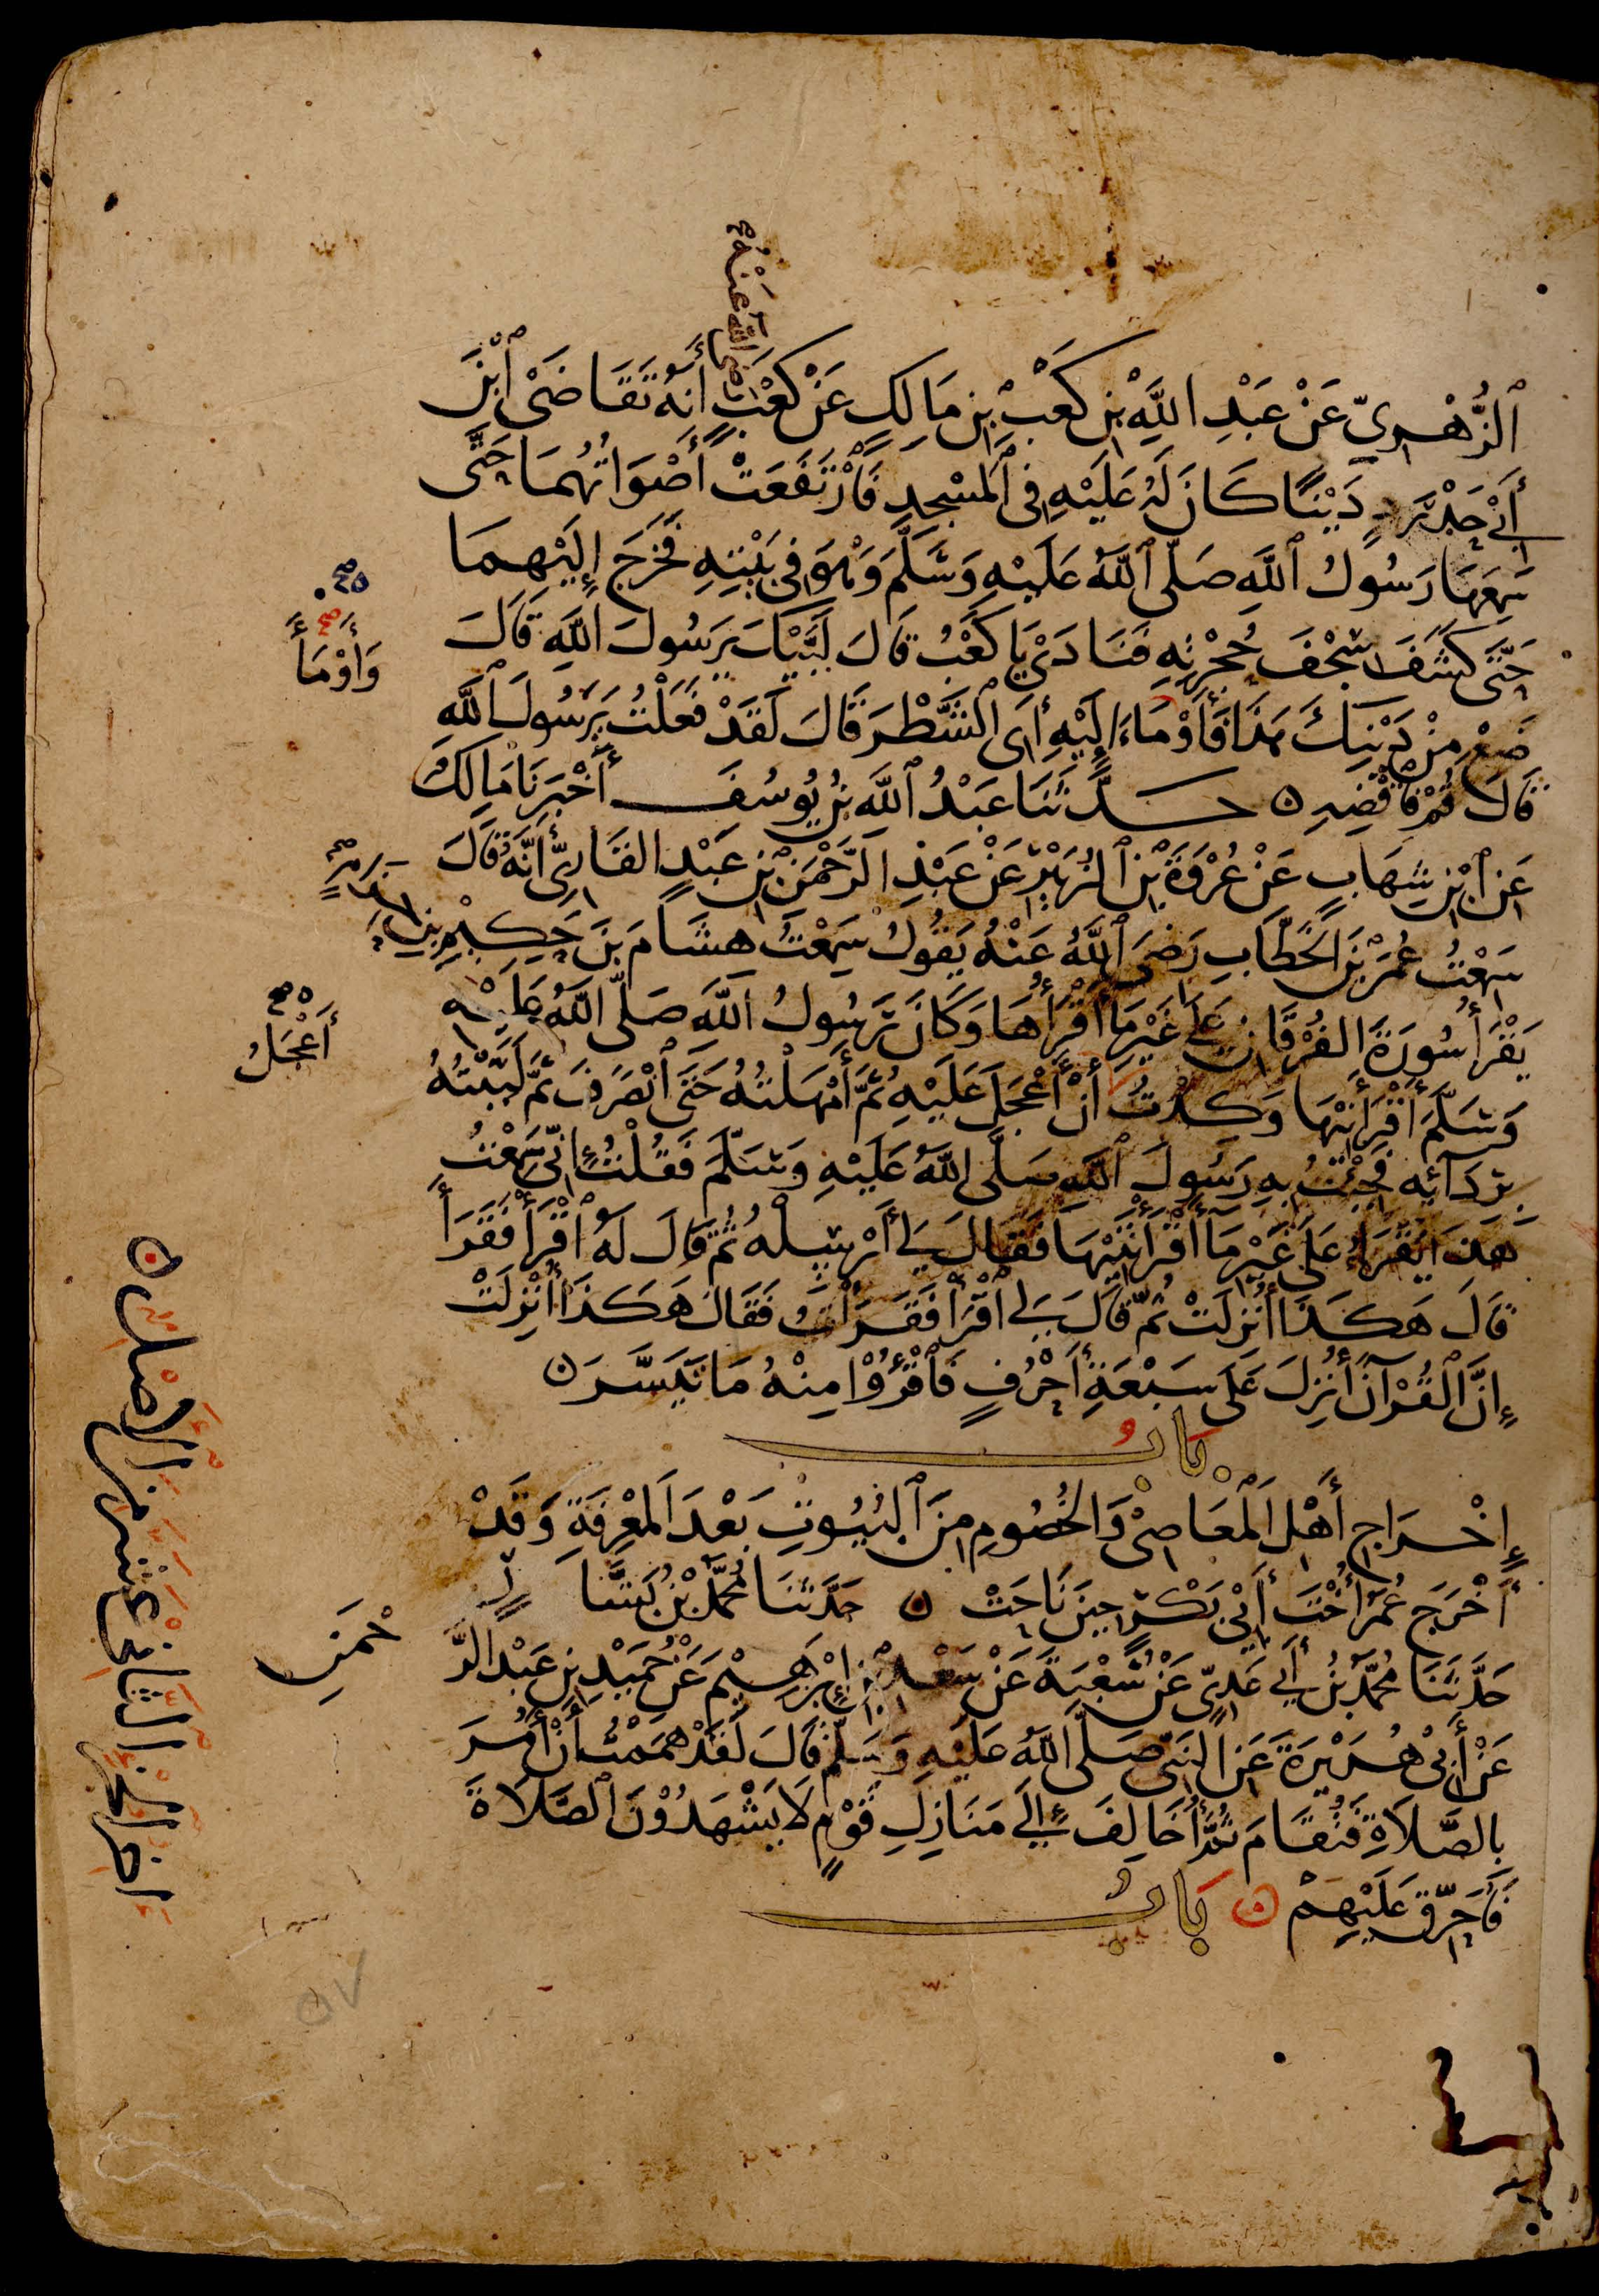 رضي الله عنه صح
ٱلزُّهْرِيِّ عَنْ عَبْدِ اللَّهِ بْنِ كَعْبِ بْنِ مَالِكٍ عَنْ كَعْبٍ أَنَّهُ تَقَاضَىٰ ٱبْنَ
أَبِي حَدْرَدٍ دَيْنًا كَانَ لَهُ عَلَيْهِ فِي ٱلْمَسْجِدِ فَٱرْتَفَعَتْ أَصْوَاتُهُمَا حَتَّى
سَمِعَهَا رَسُولُ ٱللَّهِ صَلَّى ٱللَّهُ عَلَيْهِ وَسَلَّمَ وَهْوَ فِي بَيْتِهِ فَخَرَجَ إِلَيْهِمَا
حَتَّى كَشَفَ سِجْفَ حُجْرَتِهِ فَنَادَىٰ يَا كَعْبُ قَالَ لَبَّيْكَ يَرَسُولَ اللَّهِ قَالَ
صح
وَأَوْمَأَ
ضَعْ مِنْ دَيْنِكَ هَذَا فَأَوْمَاءَ إِلَيْهِ أَيِ الشَّطْرَ قَالَ لَقَدْ فَعَلْتُ يَرَسُولَ اللَّهِ
قَالَ قُمْ فَاقْضِهِ ن حَدَّثَنَا عَبْدُ ٱللَّهِ بْنُ يُوسُفَ أَخْبَرَنَا مَالِكٌ
عَنِ ٱبْنِ شِهَابٍ عَنْ عُرْوَةَ بْنِ ٱلزُّبَيْرِ عَنْ عَبْدِ الرَّحْمَنِ بْنِ عَبْدٍ الْقَارِيِّ أَنَّهُ قَالَ
سَمِعْتُ عُمَرَ بْنَ الْخَطَّابِ رَضِيَ ٱللَّهُ عَنْهُ يَقُولُ سَمِعْتُ هِشَامَ بْنَ حَكِيمِ بْنِ حِزَامٍ
يَقْرَأُ سُورَةَ الْفُرْقَانِ عَلَى غَيْرِ مَا أَقْرَأُهَا وَكَانَ رَسُولُ اللَّهِ صَلَّى اللَّهُ عَلَيْهِ
صح
أَعْجَلُ
وَسَلَّمَ أَقْرَأَنِيهَا وَكِدْتُ أَنْ أَعْجَلَ عَلَيْهِ ثُمَّ أَمْهَلْتُهُ حَتَّى ٱنْصَرَفَ ثُمَّ لَبَّبْتُهُ
بِرِدَآئِهِ فَجِئْتُ بِهِ رَسُولَ ٱللَّهِ صَلَّى اللَّهُ عَلَيْهِ وَسَلَّمَ فَقُلْتُ إِنِّي سَمِعْتُ
هَذَا يَقْرَأُ عَلَى غَيْرِ مَا أَقْرَأْتَنِيهَا فَقَالَ لِي أَرْسِلْهُ ثُمَّ قَالَ لَهُ ٱقْرَأْ فَقَرَأَ
قَالَ هَكَذَا أُنْزِلَتْ ثُمَّ قَالَ لِي ٱقْرَأْ فَقَرَأْتُ فَقَالَ هَكَذَا أُنْزِلَتْ
إِنَّ الْقُرْآنَ أُنْزِلَ عَلَى سَبْعَةِ أَحْرُفٍ فَٱقْرَؤُا مِنْهُ مَا تَيَسَّرَ ن
بَابُ
إِخْرَاجِ أَهْلِ الْمَعَاصِي وَالْخُصُومِ مِنَ ٱلْبُيُوتِ بَعْدَ الْمَعْرِفَةِ وَقَدْ
أَخْرَجَ عُمَرُ أُخْتَ أَبِي بَكْرٍ حِينَ نَاحَتْ ن حَدَّثَنَا مُحَمَّدُ بْنُ بَشَّارٍ
حَدَّثَنَا مُحَمَّدُ بْنُ أَبِي عَدِيٍّ عَنْ شُعْبَةَ عَنْ سَعْدِ بْنِ إِبْرَاهِيمَ عَنْ حُمَيْدِ بْنِ عَبْدِ الرَّ
حْمَنِ
عَنْ أَبِي هُرَيْرَةَ عَنِ النَّبِيِّ صَلَّى اللَّهُ عَلَيْهِ وَسَلَّمَ قَالَ لَقَدْ هَمَمْتُ أَنْ آمُرَ
بِالصَّلَاةِ فَتُقَامَ ثُمَّ أُخَالِفَ إِلَى مَنَازِلِ قَوْمٍ لَا يَشْهَدُونَ الصَّلَاةَ
فَأُحَرِّقَ عَلَيْهِمْ ن بَابُ
اخر الجز الثاني عشر من الأصل ن
٥٧